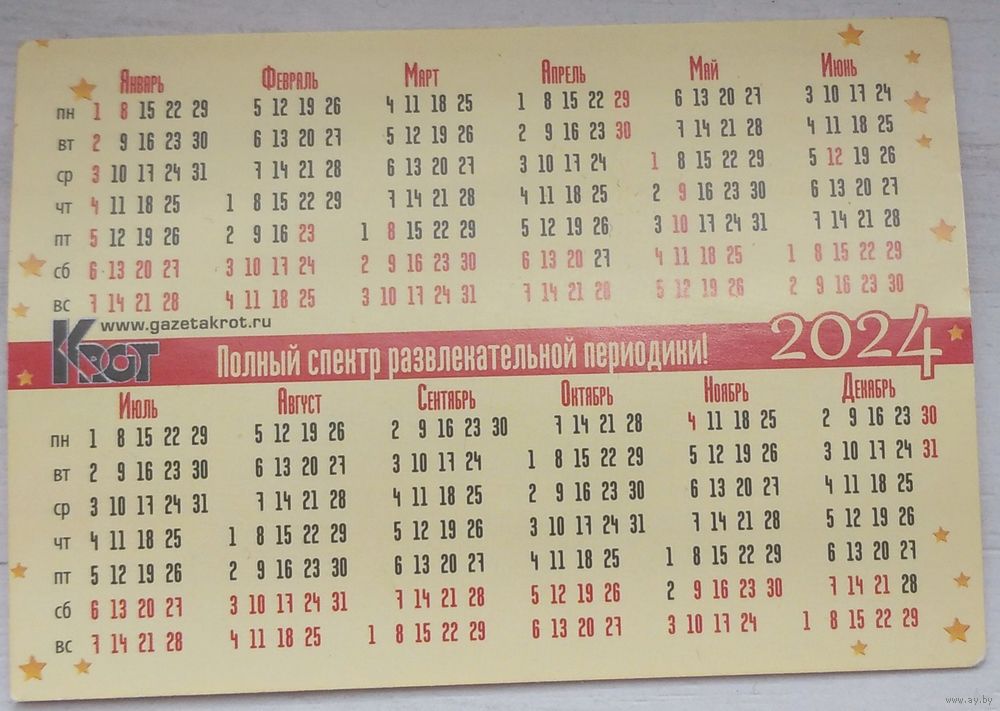 Январь Февраль Март Апрель Май Июнь
пн 1 8 15 22 29 5 12 19 26 4 11 18 25 1 8 15 22 29 6 13 20 27 3 10 17 24
вт 2 9 16 23 30 6 13 20 27 5 12 19 26 2 9 16 23 30 7 14 21 28 4 11 18 25
ср 3 10 17 24 31 7 14 21 28 6 13 20 27 3 10 17 24 1 8 15 22 29 5 12 19 26
чт 4 11 18 25 1 8 15 22 29 7 14 21 28 4 11 18 25 2 9 16 23 30 6 13 20 27
пт 5 12 19 26 2 9 16 23 1 8 15 22 29 5 12 19 26 3 10 17 24 31 7 14 21 28
сб 6 13 20 27 3 10 17 24 2 9 16 23 30 6 13 20 27 4 11 18 25 1 8 15 22 29
вс 7 14 21 28 4 11 18 25 3 10 17 24 31 7 14 21 28 5 12 19 26 2 9 16 23 30
www.gazetakrot.ru
Крот Полный спектр развлекательной периодики! 2024
Июль Август Сентябрь Октябрь Ноябрь Декабрь
пн 1 8 15 22 29 5 12 19 26 2 9 16 23 30 7 14 21 28 4 11 18 25 2 9 16 23 30
вт 2 9 16 23 30 6 13 20 27 3 10 17 24 1 8 15 22 29 5 12 19 26 3 10 17 24 31
ср 3 10 17 24 31 7 14 21 28 4 11 18 25 2 9 16 23 30 6 13 20 27 4 11 18 25
чт 4 11 18 25 1 8 15 22 29 5 12 19 26 3 10 17 24 31 7 14 21 28 5 12 19 26
пт 5 12 19 26 2 9 16 23 30 6 13 20 27 4 11 18 25 1 8 15 22 29 6 13 20 27
сб 6 13 20 27 3 10 17 24 31 7 14 21 28 5 12 19 26 2 9 16 23 30 7 14 21 28
вс 7 14 21 28 4 11 18 25 1 8 15 22 29 6 13 20 27 3 10 17 24 1 8 15 22 29
www.ay.by